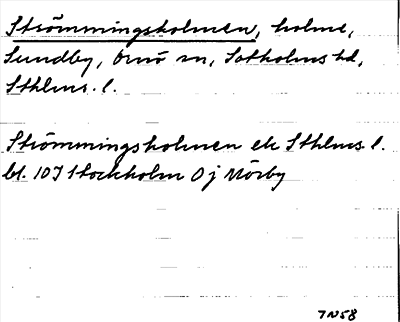 Strömmingsholmen, holme,
Sundby, Ornö sn, Sotholms hd,
Sthlms. l.
Strömmingsholmen ek Sthlms l.
bl. 107 Stockholm Oj Mörby
7N58